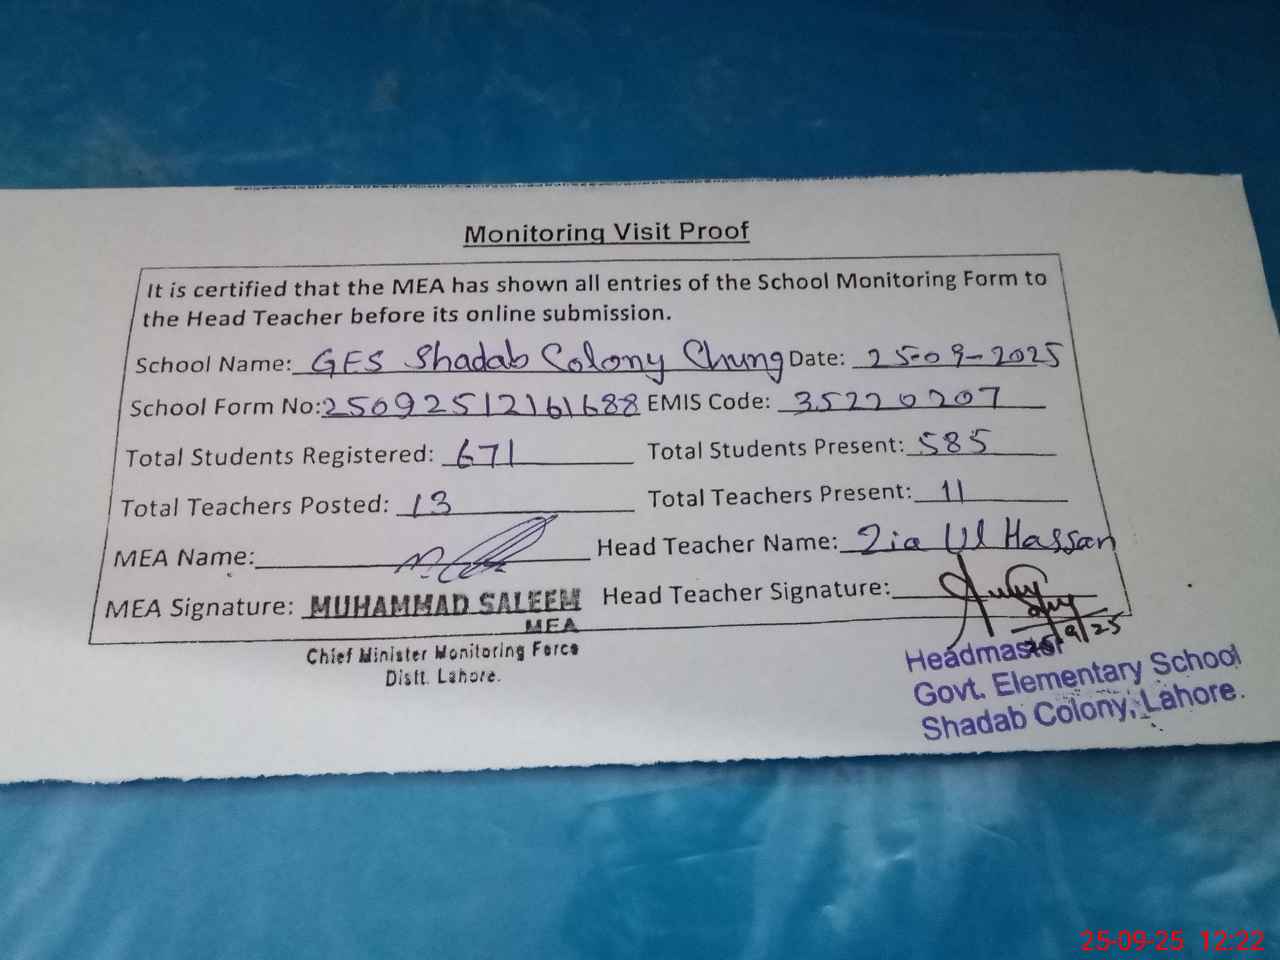 Monitoring Visit Proof
It is certified that the MEA has shown all entries of the School Monitoring Form to
the Head Teacher before its online submission.
School Name: GES Shadab Colony Chung Date: 25-09-2025
School Form No: 25092512161688 EMIS Code: 35220207
Total Students Registered: 671 Total Students Present: 585
Total Teachers Posted: 13 Total Teachers Present: 11
MEA Name: Head Teacher Name: Zia Ul Hassan
MEA Signature: MUHAMMAD SALEEM Head Teacher Signature:
MEA
25/9/25
Chief Minister Monitoring Force
Distt. Lahore.
Headmaster
Govt. Elementary School
Shadab Colony, Lahore.
25-09-25 12:22